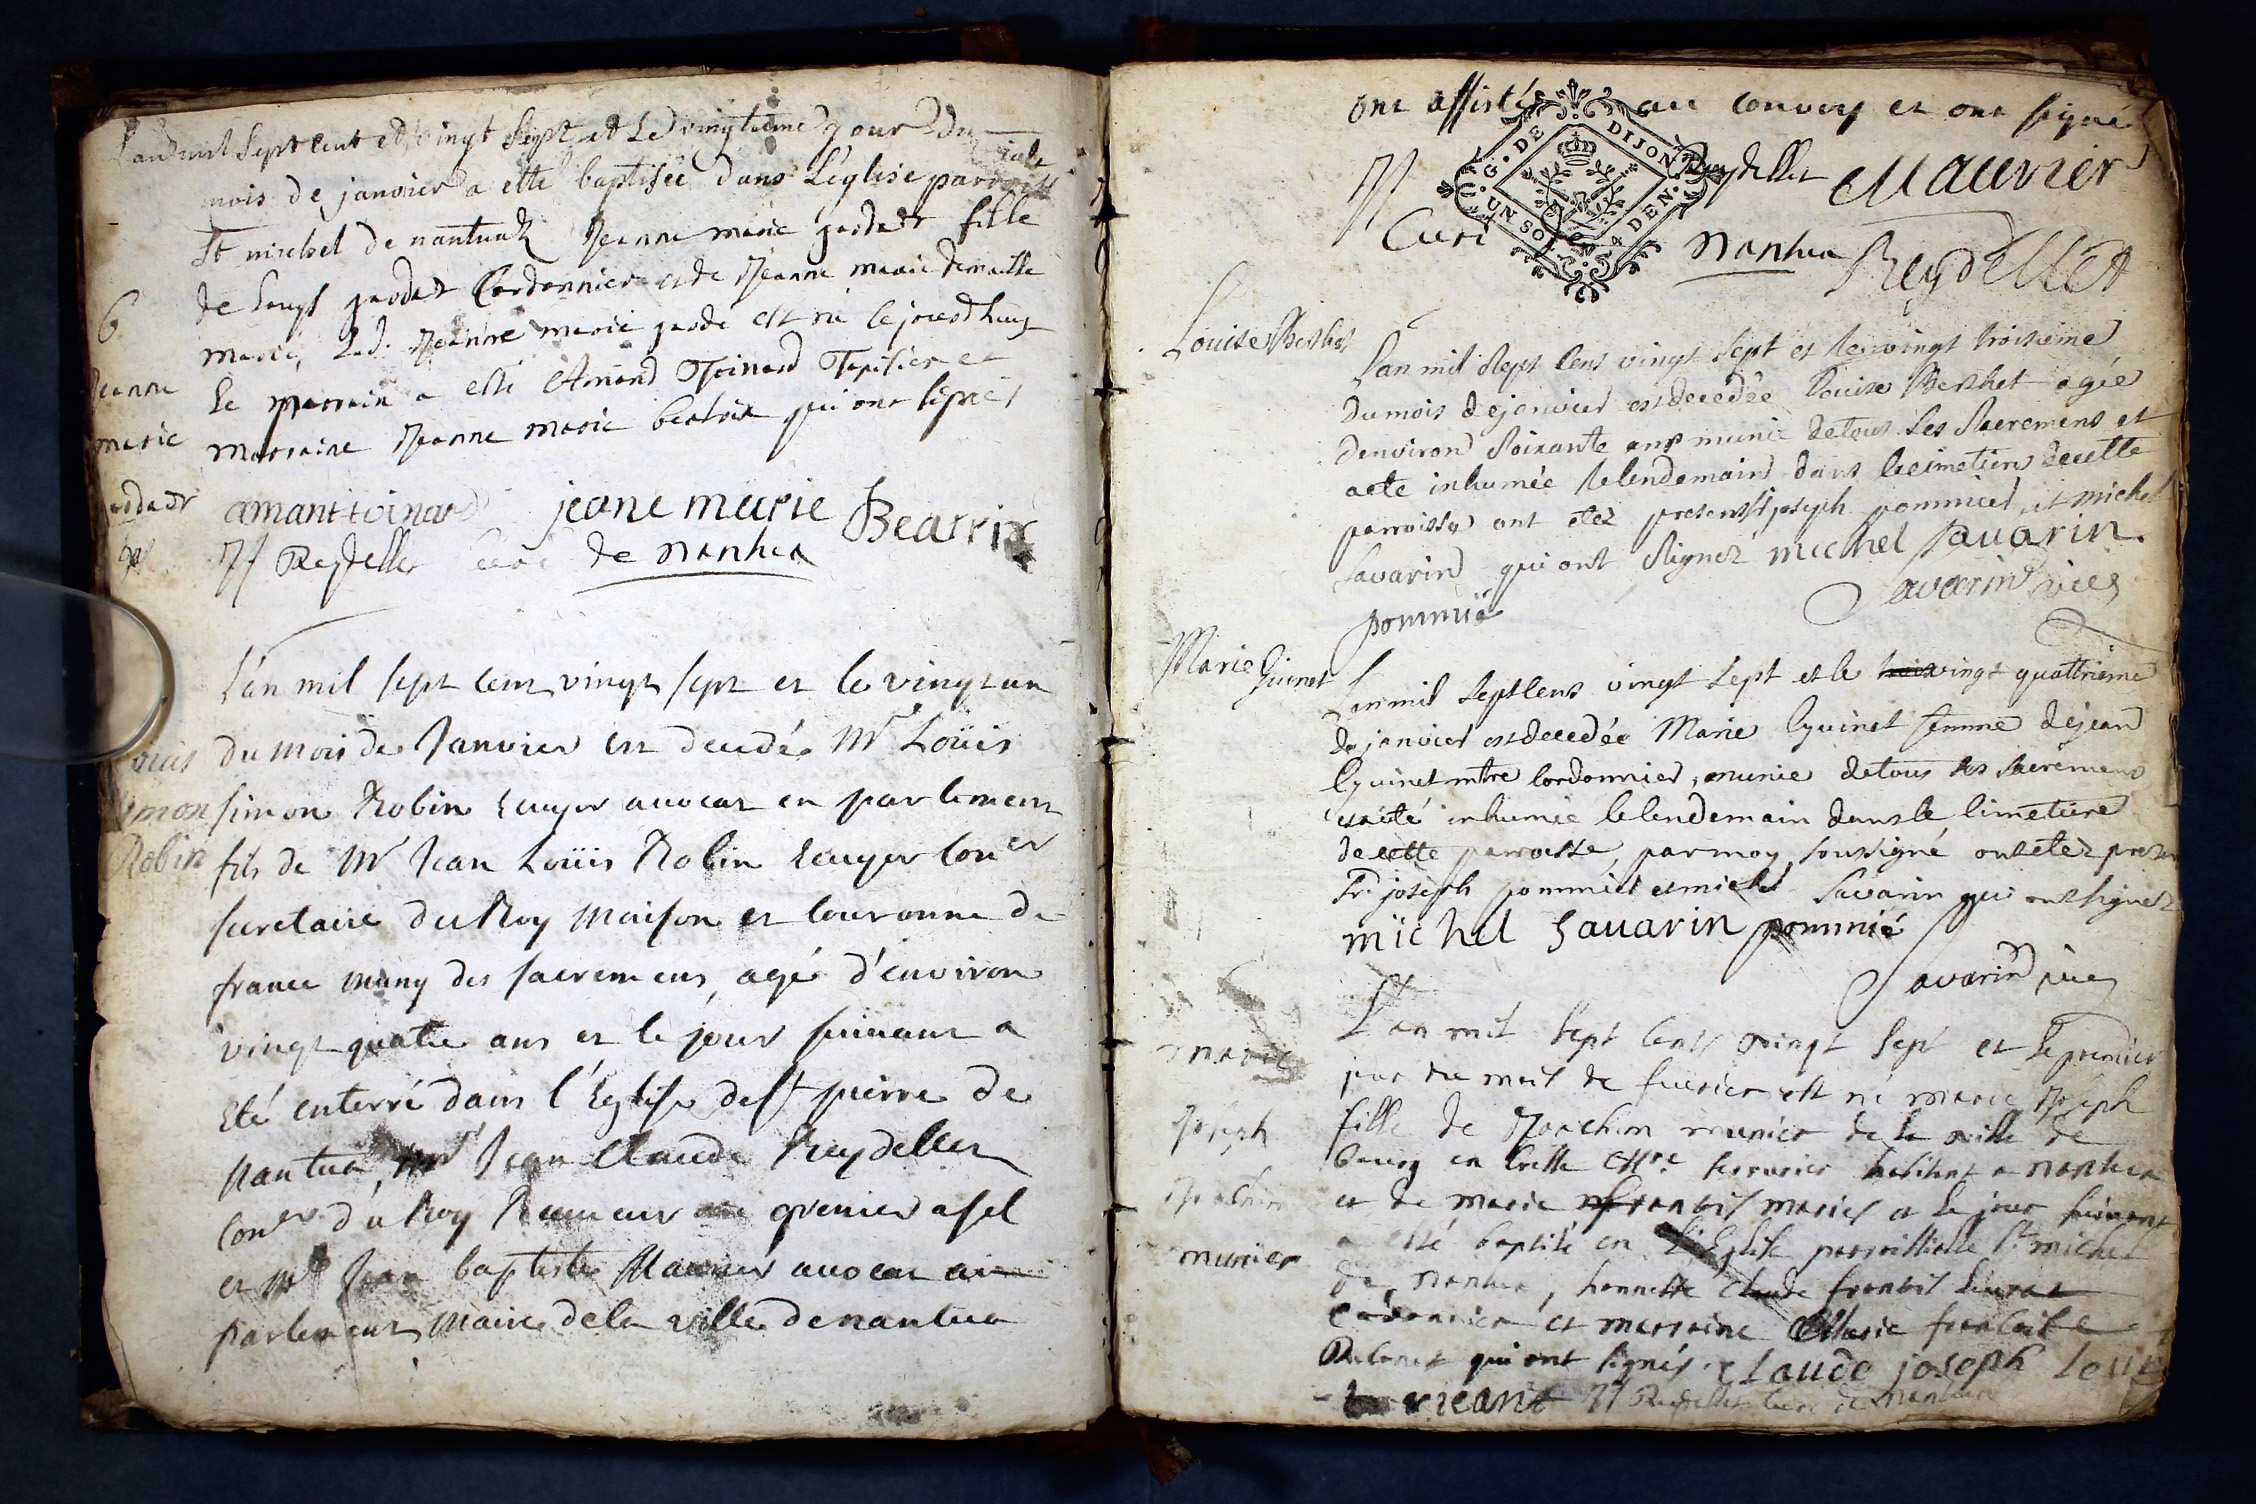 L'an mil sept cent et vingt sept et le vingtieme jour du
mois de janvier a etté baptisée dans L'église parroissiale
St michel de nantuah Jeanne marie gardet fille
de Louys gardet Cordonnier et de Jeanne marie
mariés, Lad. Jeanne marie est né le jourdhuy
Le parrain a esté Amand Toinard Tapisier et
marraine Jeanne marie beatrix qui ont signés
6
Jeanne
marie
gardet
amant toinard jeane marie Bearrix
JJ Reydellet Curé de nantua
L'an mil sept cent vingt sept et le vingt un
du mois de Janvier est decedé Mr Loüis
simon Robin Ecuyer avocat en parlement
fils de Mr Jean Loüis Robin Ecuyer Coner
secretaire du Roy Maison et Couronne de
france muny des sacremens, agé d'environ
vingt quatre ans et le jour suivant a
Eté enterré dans l'Eglise de St pierre de
Nantua, Mr Jean Claude Reydellet
Coner du Roy Receveur au grenier a sel
et Mr Jean baptiste Mauvier avocat au
parlement, Maire de la ville de nantua
Louis
simon
Robin
ont assistés au convoy et ont signé
G. DE DIJON
UN SOL 4 DEN.
JJ Reydellet Mauvier
Curé Nantua Reydellet
Louise Berthet
L'an mil sept cens vingt sept et le vingt troisieme
du mois de janvier est decedée Louise Berthet agée
denviron soixante ans munie de tous les Sacremens et
a eté inhumée le lendemain dans le cimetiere de cette
parroisse ont etez presents joseph pommier, et michel
Savarin qui ont signez michel Savarin
pommié Savarin vice
Marie Guinet
L'an mil sept cens vingt sept et le vingt quattrieme
de janvier est decedée Marie Guinet femme de jean
Guinet mtre Cordonnier, munie de tous les sacremens
et a eté inhumée le lendemain dans le Cimetiere
de cette parroisse, par moy soussigné ont etez presens
Sr. joseph pommier et michel Savarin qui ont signez
michel Savarin pommié
Savarin vice
L'an mil sept cents vingt sept et le premier
jour du mois de fevrier est né marie Joseph
fille de Joachim munier de la ville de
bourg en bresse Mtre serrurier habitant a nantua
et de marie françois mariés et le jour suivant
a esté baptisé en L'Eglise parroissialle St michel
de nantua, honneste Claude françois
cordonnier et marraine Marie francoise
qui ont signés Claude joseph
JJ Reydellet Curé de nantua
marie
Joseph
Joachim
munier